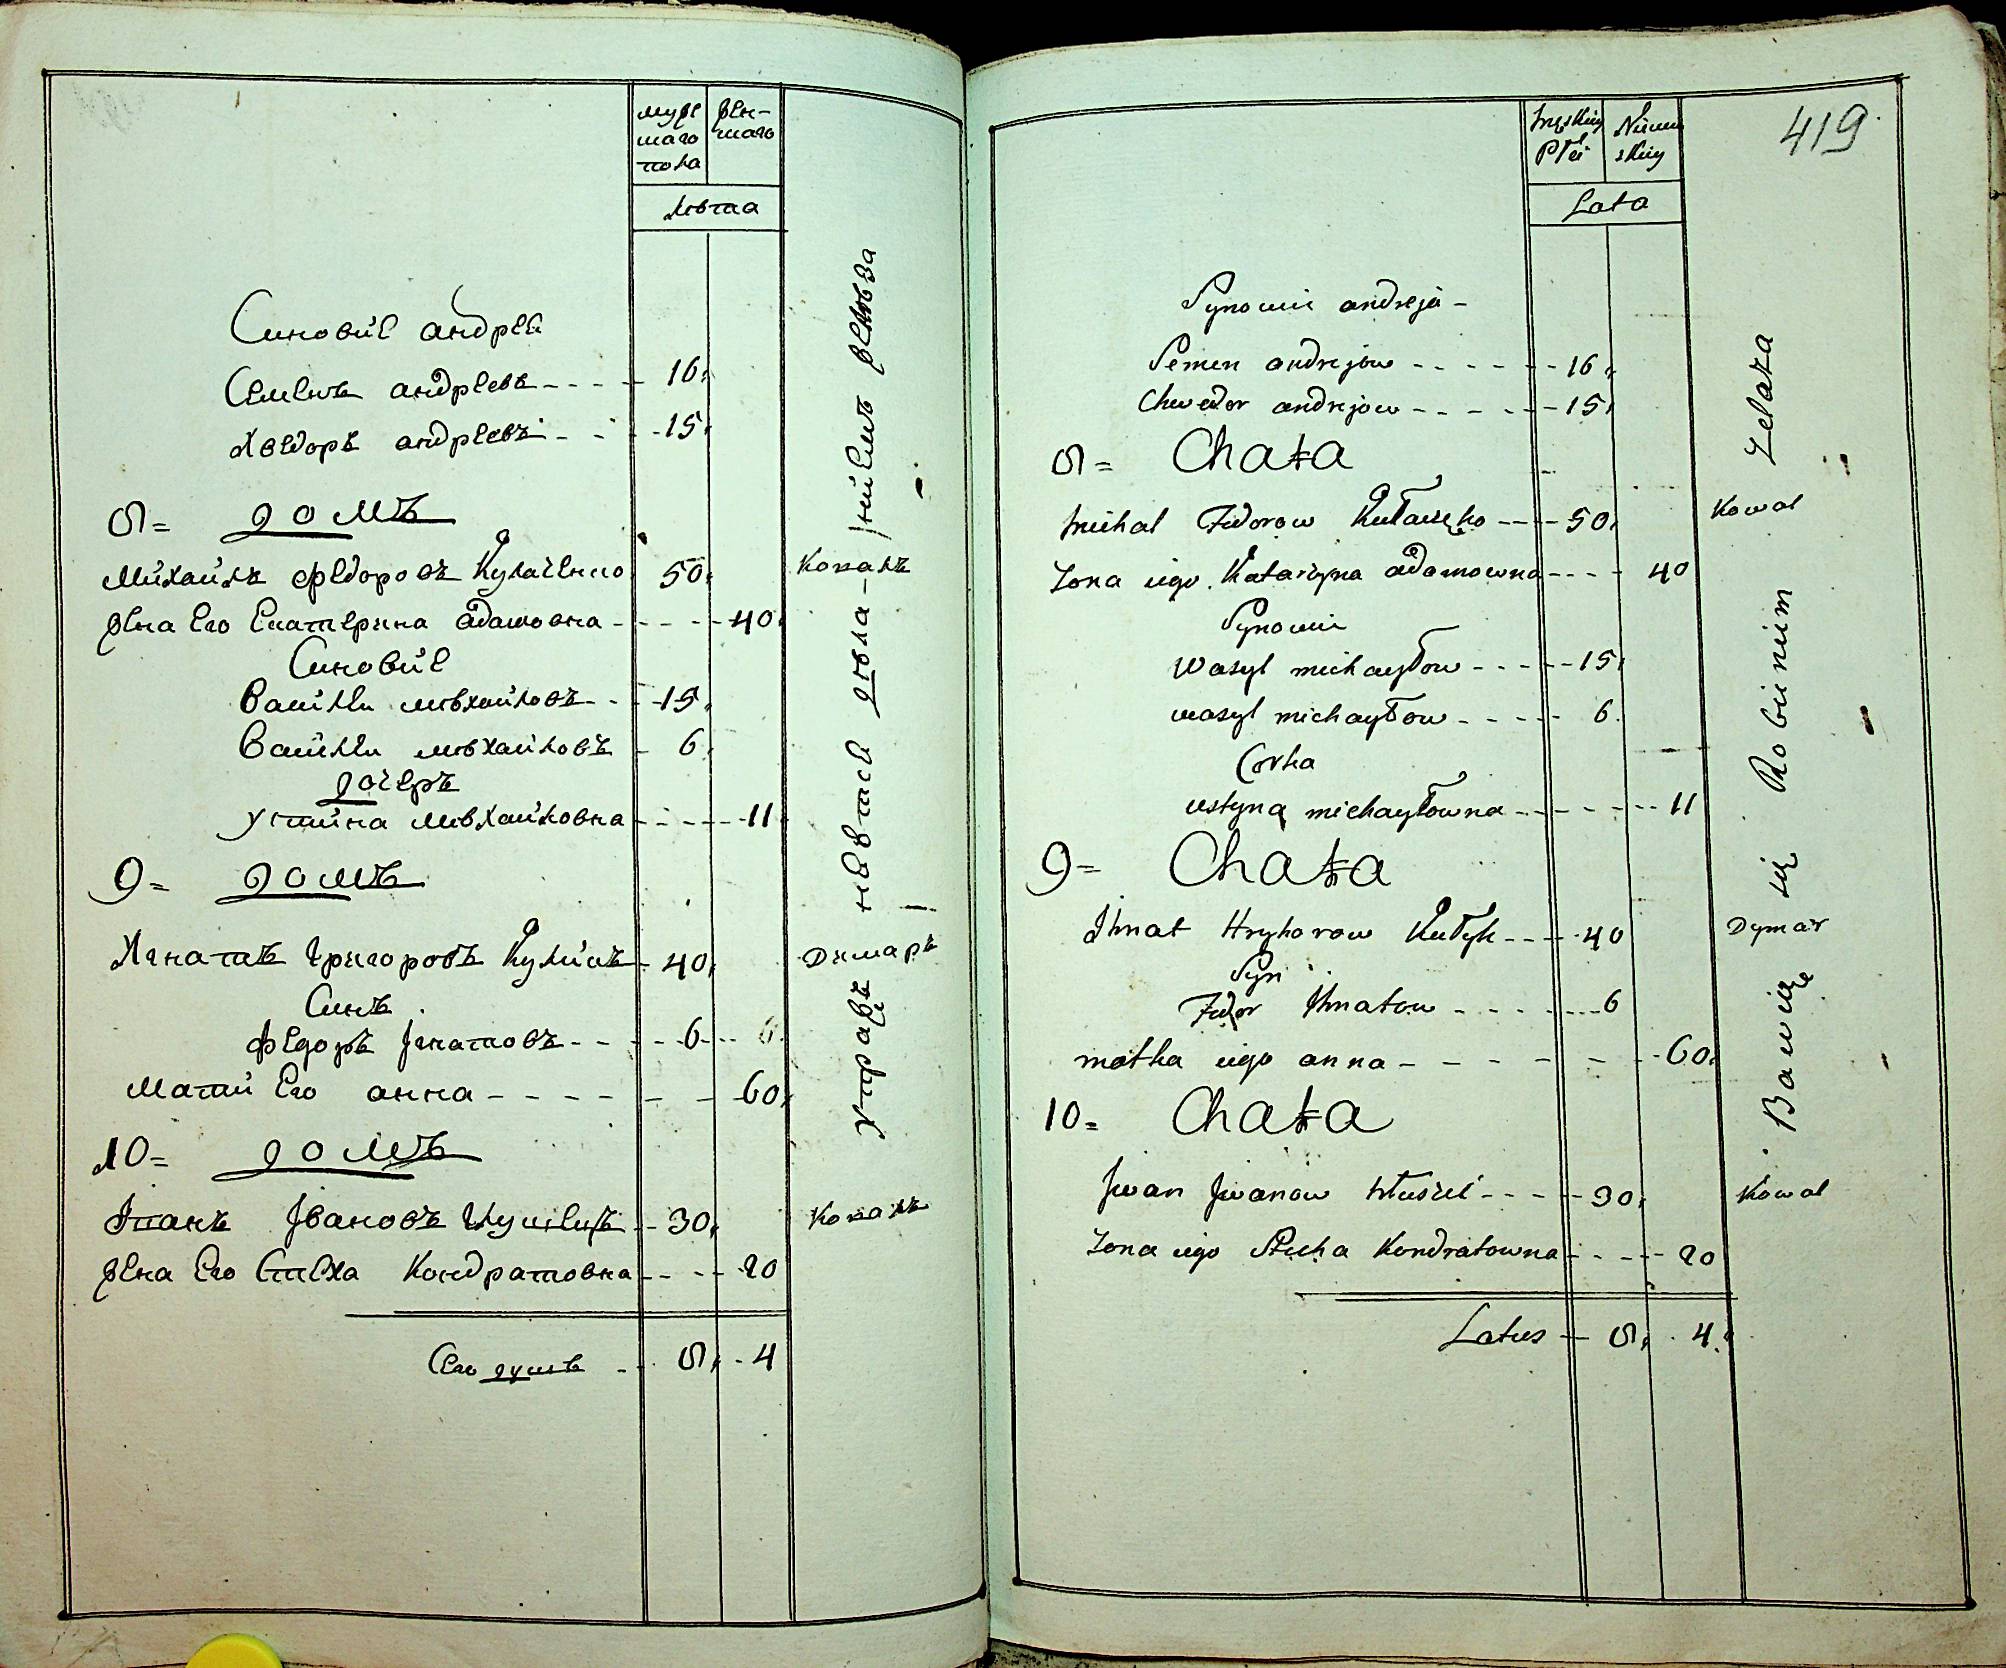 мужескаго пола
женскаго
Лѣта
Синовiе андрея
Семенъ андреевъ - - - - 16
Хведоръ андреевъ - - - 15
8= домъ
Михайлъ Федоровъ Кулаченко 50 Коваль
жена Его Екатерина адамовна - - - - 40
Синовiе
Василiй мѣхайловъ - - 15
Василiй мѣхайловъ - 6
дочеръ
Устина мѣхайловна - - - - - 11
9= домъ
Хгнатъ Григоровъ Куликъ - 40 Димаръ
Синъ
Федоръ Iгнатовъ - - - 6
Мати Его анна - - - - - - 60
10= домъ
Iванъ Iвановъ - - 30 Коваль
жена Его Стеха Кондратовна - - - 20
Сего душъ - - 8 - 4
419
męskiey Płci
Niewieskiey
Lata
Synowie andreja -
Semen andrejow - - - - - 16
Chwedor andrejow - - - - - 15
8= Chata
michal Fedorow Kułaczęko - - - 50 Kowal
Zona iego Katarzyna adamowna - - - - 40
Synowie
Wasyl michayłow - - - - - 15
wasyl michayłow - - - - - 6
Corka
ustyna michayłowna - - - - - 11
9= Chata
Ihnat Hryhorow Kułyk - - - 40 Dymar
Syn
Fedor Ihnatow - - - - - 6
matka iego anna - - - - - - 60
10= Chata
Jwan Jwanow - - - - 30 Kowal
Zona iego Stecha Kondratowna - - - - 20
Latus - 8 4
Bawią się Robieniem Zelaza